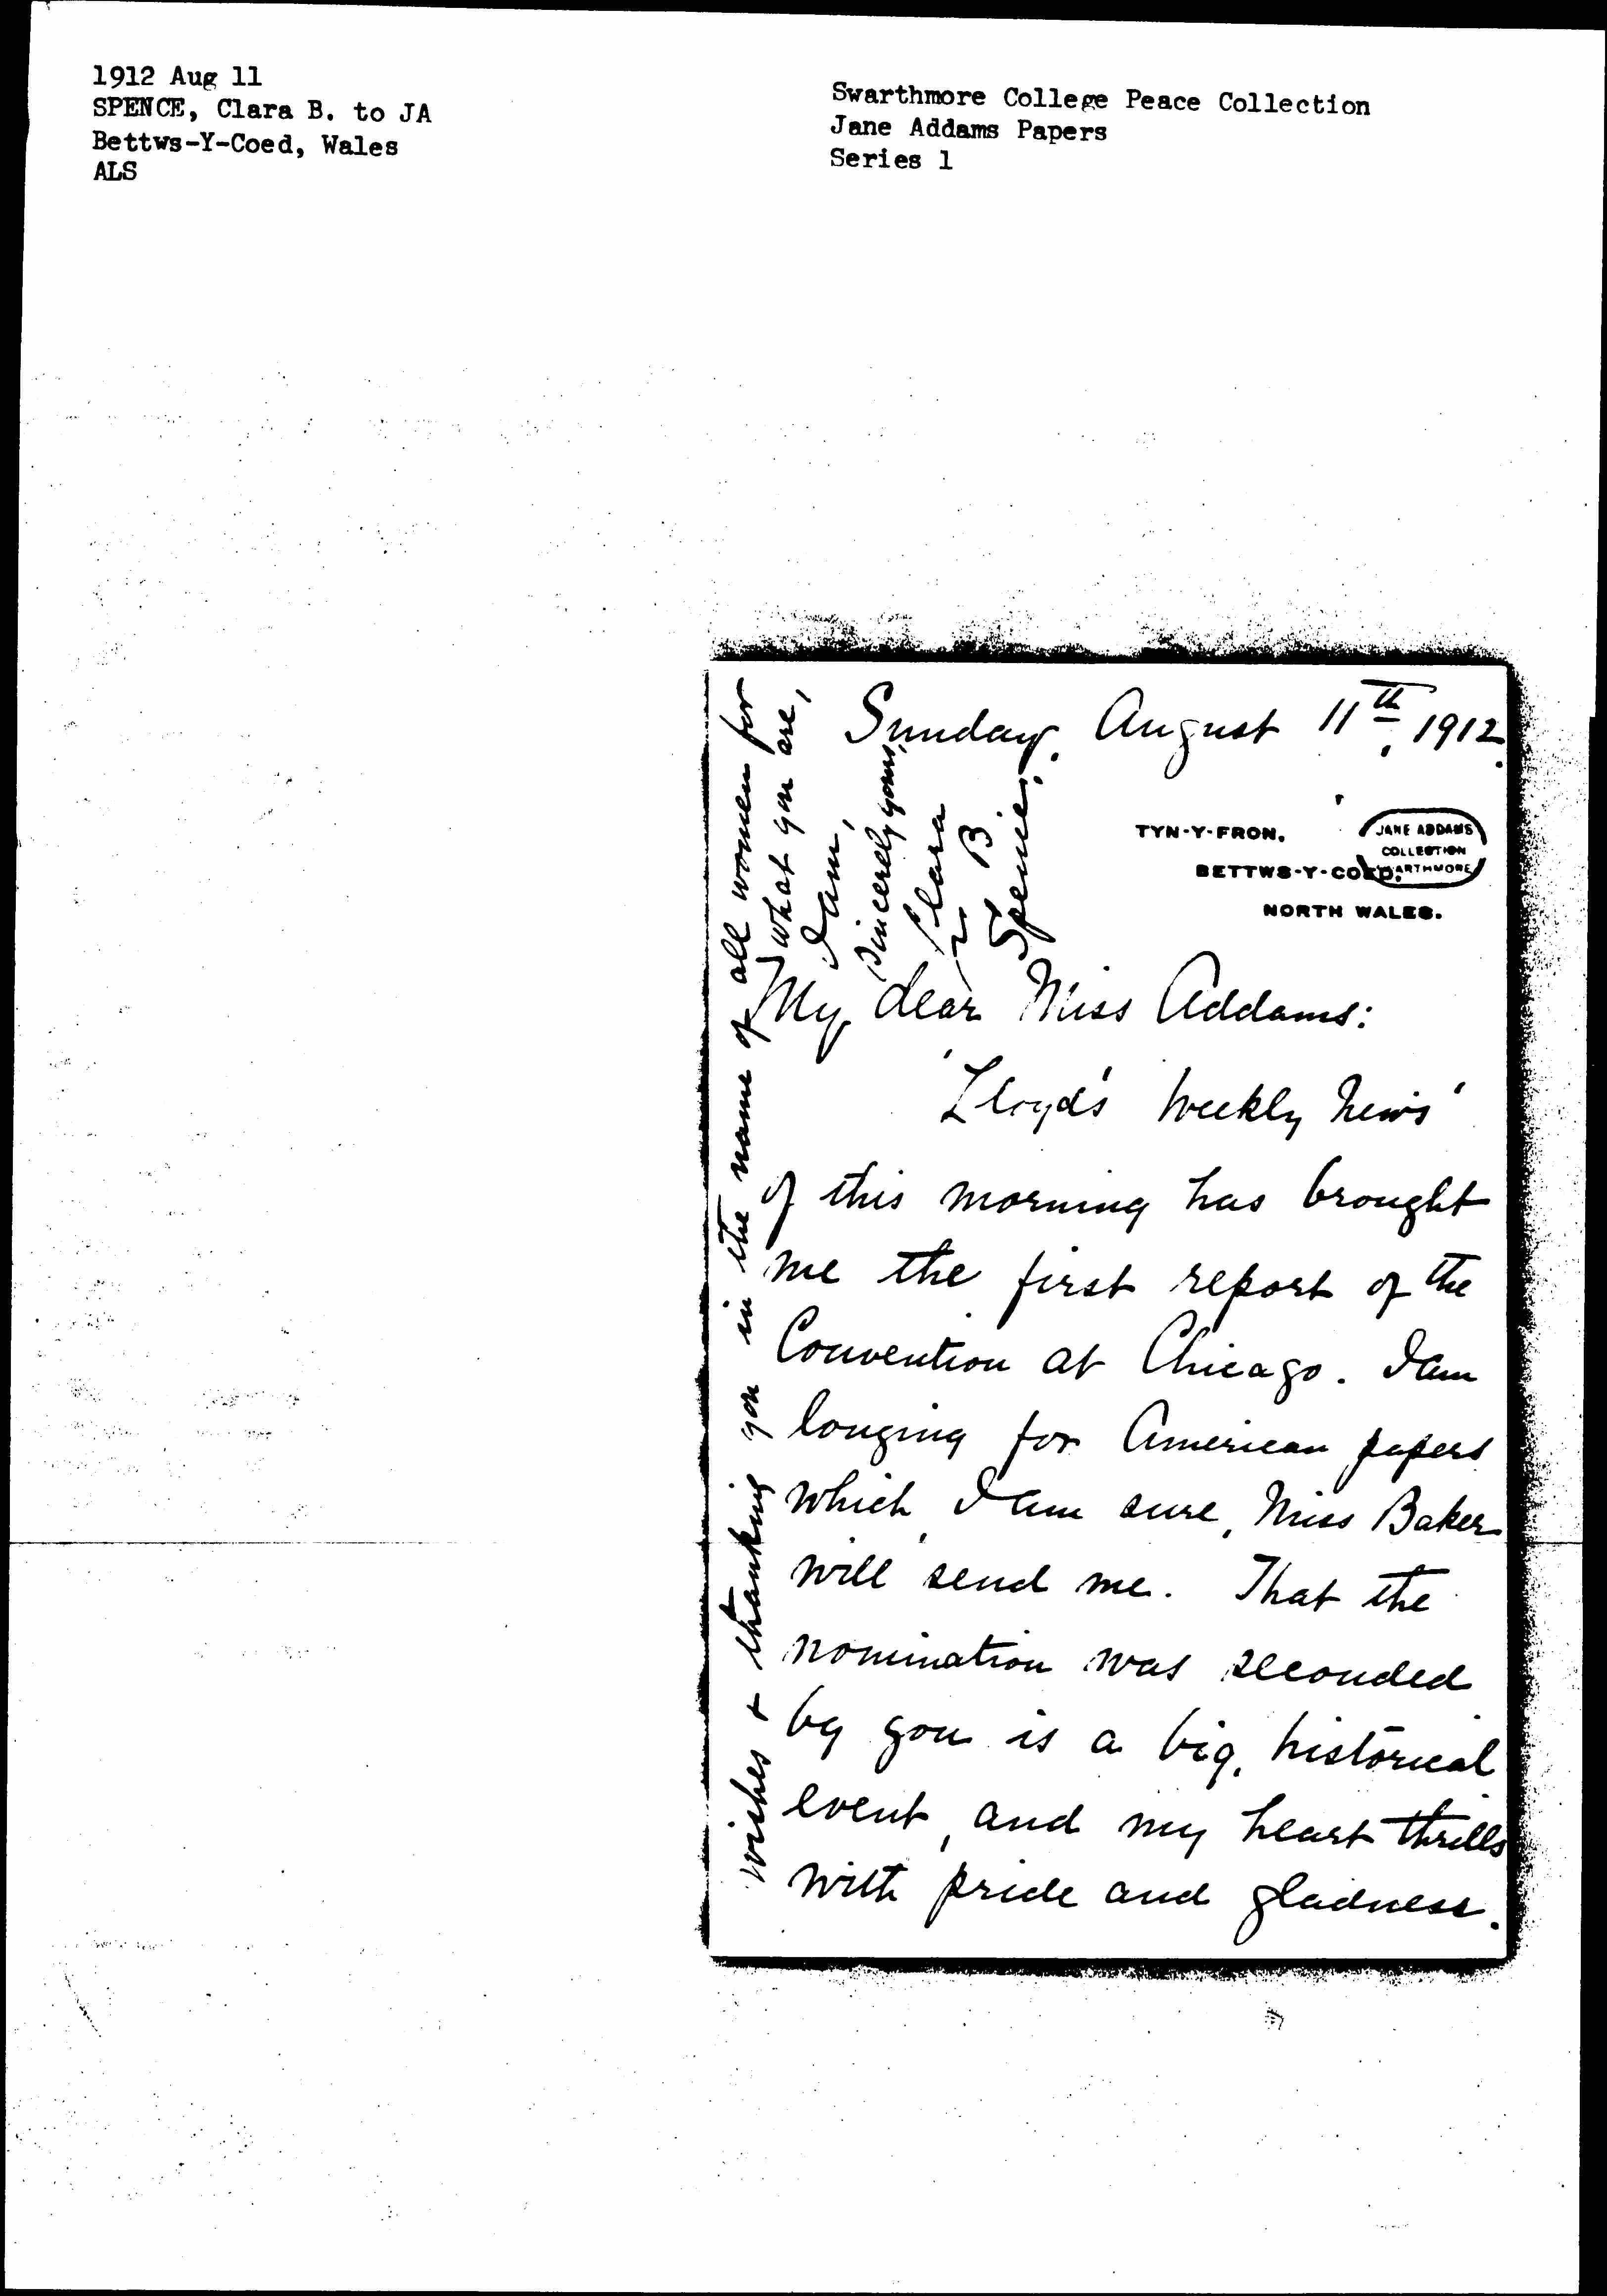 1912 Aug 11
SPENCE, Clara B. to JA
Bettws-Y-Coed, Wales
ALS
Swarthmore College Peace Collection
Jane Addams Papers
Series 1
Sunday. August 11th, 1912.
TYN-Y-FRON,
BETTWS-Y-COED,
NORTH WALES.
JANE ADDAMS
COLLECTION
SWARTHMORE
My dear Miss Addams:
'Lloyd's Weekly News'
of this morning has brought
me the first report of the
Convention at Chicago. I am
longing for American papers
which, I am sure, Miss Baker
will send me. That the
nomination was seconded
by you is a big, historical
event, and my heart thrills
with pride and gladness.
wishes & thanking you in the name of all women for
what you are,
I am,
Sincerely yours,
Clara
B
Spence.